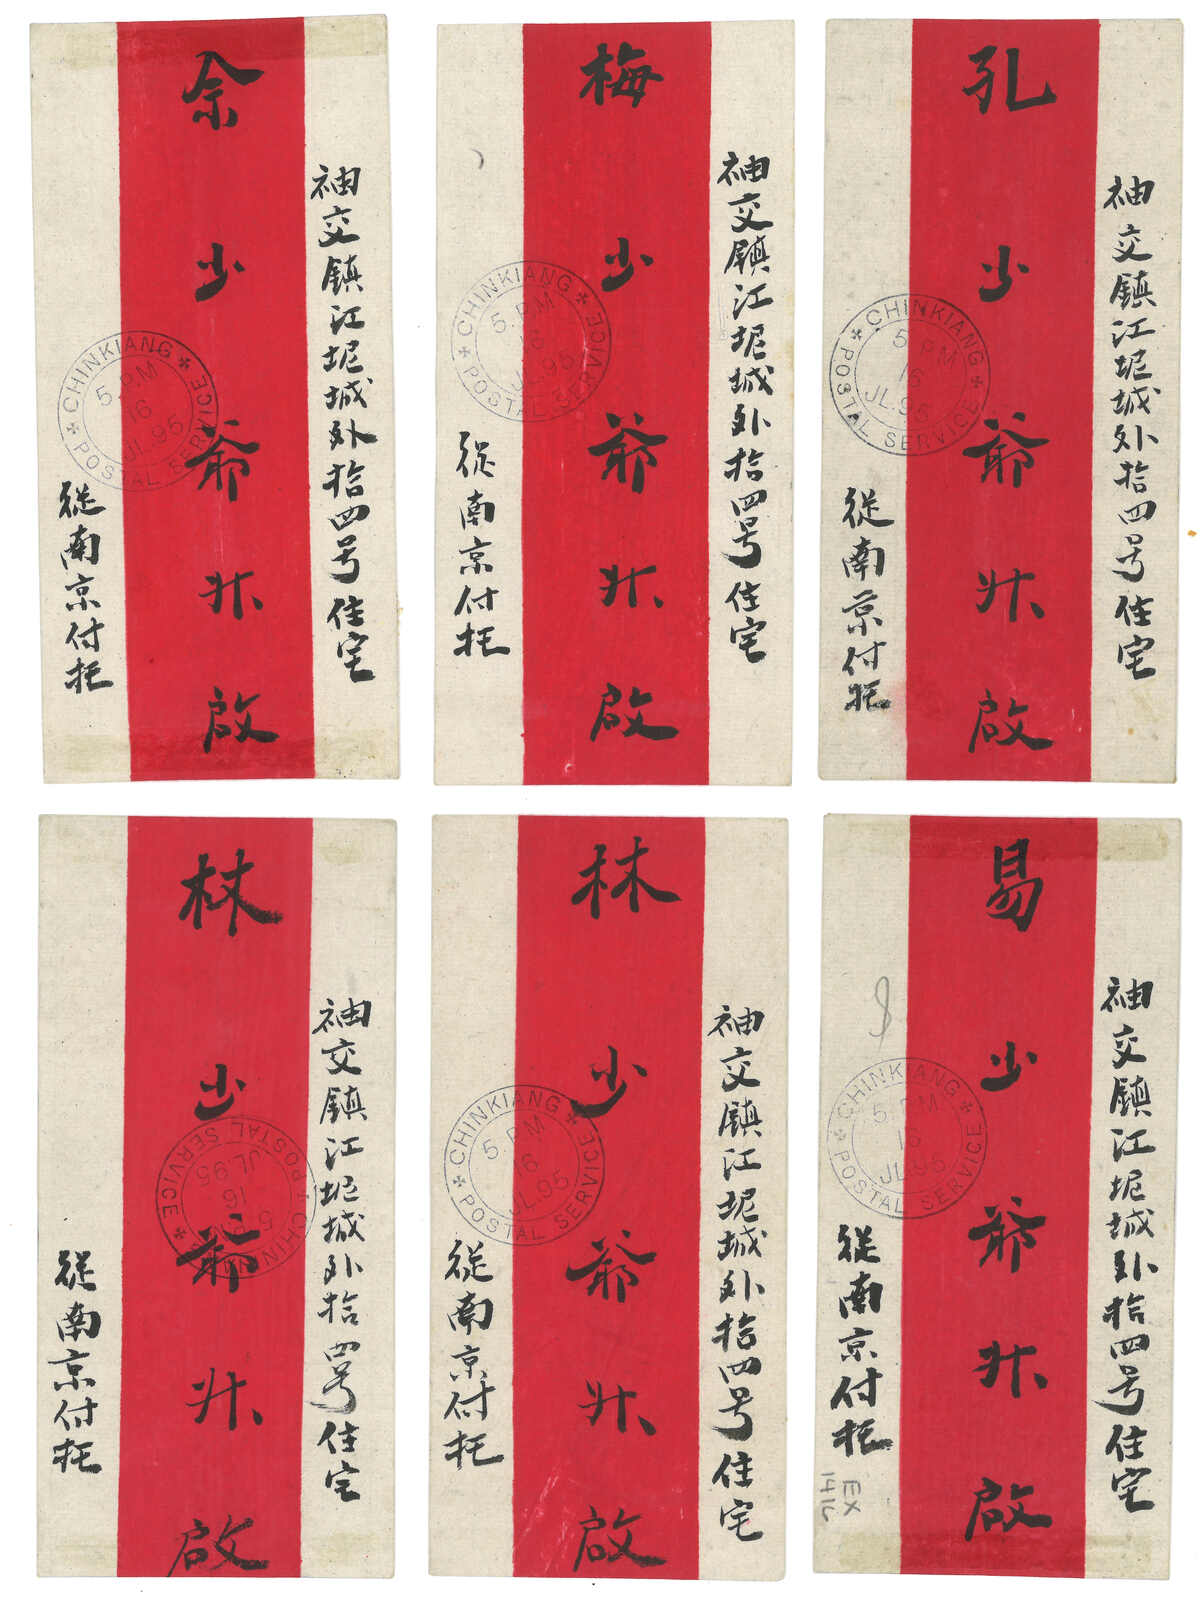 袖交鎮江坭城外拾四号住宅
佘少爺升啟
從南京付托
CHINKIANG
5.PM
16
JL.95
POSTAL SERVICE
袖交鎮江坭城外拾四号住宅
梅少爺升啟
從南京付托
CHINKIANG
5.PM
16
JL.95
POSTAL SERVICE
袖交鎮江坭城外拾四号住宅
孔少爺升啟
從南京付托
CHINKIANG
5.PM
16
JL.95
POSTAL SERVICE
袖交鎮江坭城外拾四号住宅
林少爺升啟
從南京付托
CHINKIANG
5.PM
16
JL.95
POSTAL SERVICE
袖交鎮江坭城外拾四号住宅
林少爺升啟
從南京付托
CHINKIANG
5.PM
16
JL.95
POSTAL SERVICE
袖交鎮江坭城外拾四号住宅
易少爺升啟
從南京付托
CHINKIANG
5.PM
16
JL.95
POSTAL SERVICE
EX